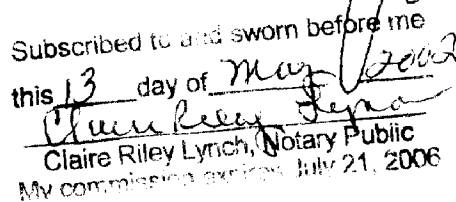 Subscribed to and sworn before me
this 13 day of May 2002
Claire Riley Lynch
Claire Riley Lynch, Notary Public
My commission expires July 21, 2006